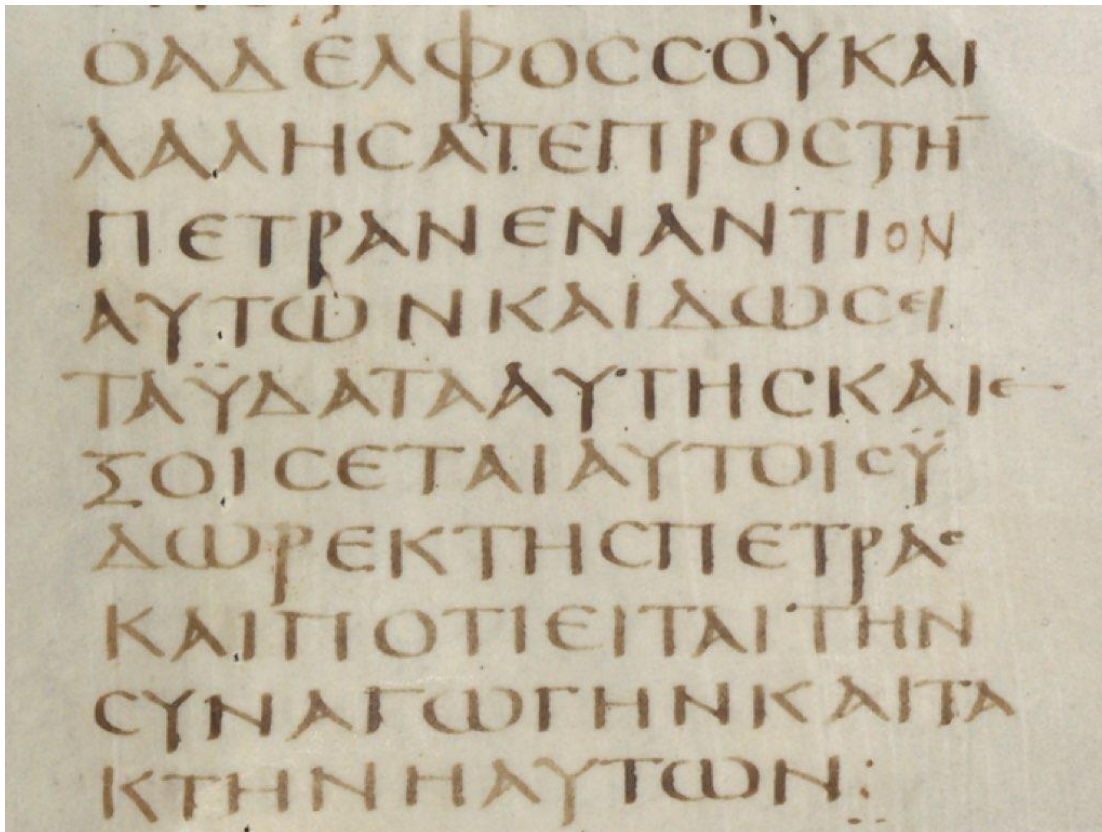 ΟΑΔΕΛΦΟΣΣΟΥΚΑΙ
ΛΑΛΗΣΑΤΕΠΡΟΣΤΗ̅
ΠΕΤΡΑΝΕΝΑΝΤΙΟΝ
ΑΥΤΩΝΚΑΙΔΩΣΕΙ
ΤΑΫΔΑΤΑΑΥΤΗΣΚΑΙΕ
ΞΟΙΣΕΤΑΙΑΥΤΟΙΣΫ
ΔΩΡΕΚΤΗΣΠΕΤΡΑΣ
ΚΑΙΠΟΤΙΕΙΤΑΙΤΗΝ
ΣΥΝΑΓΩΓΗΝΚΑΙΤΑ
ΚΤΗΝΗΑΥΤΩΝ: